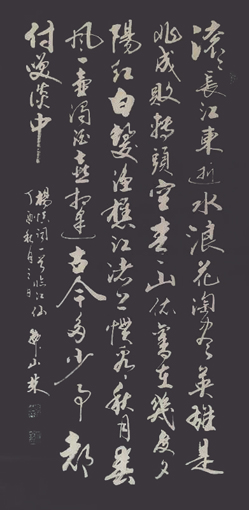 滚滚長江東逝水浪花淘尽英雄是
非成败转头空青山依旧在幾度夕
陽红白髮渔樵江渚上惯看秋月春
风一壶浊酒喜相逢古今多少事都
付笑谈中
杨慎词一首临江仙
丁酉秋月